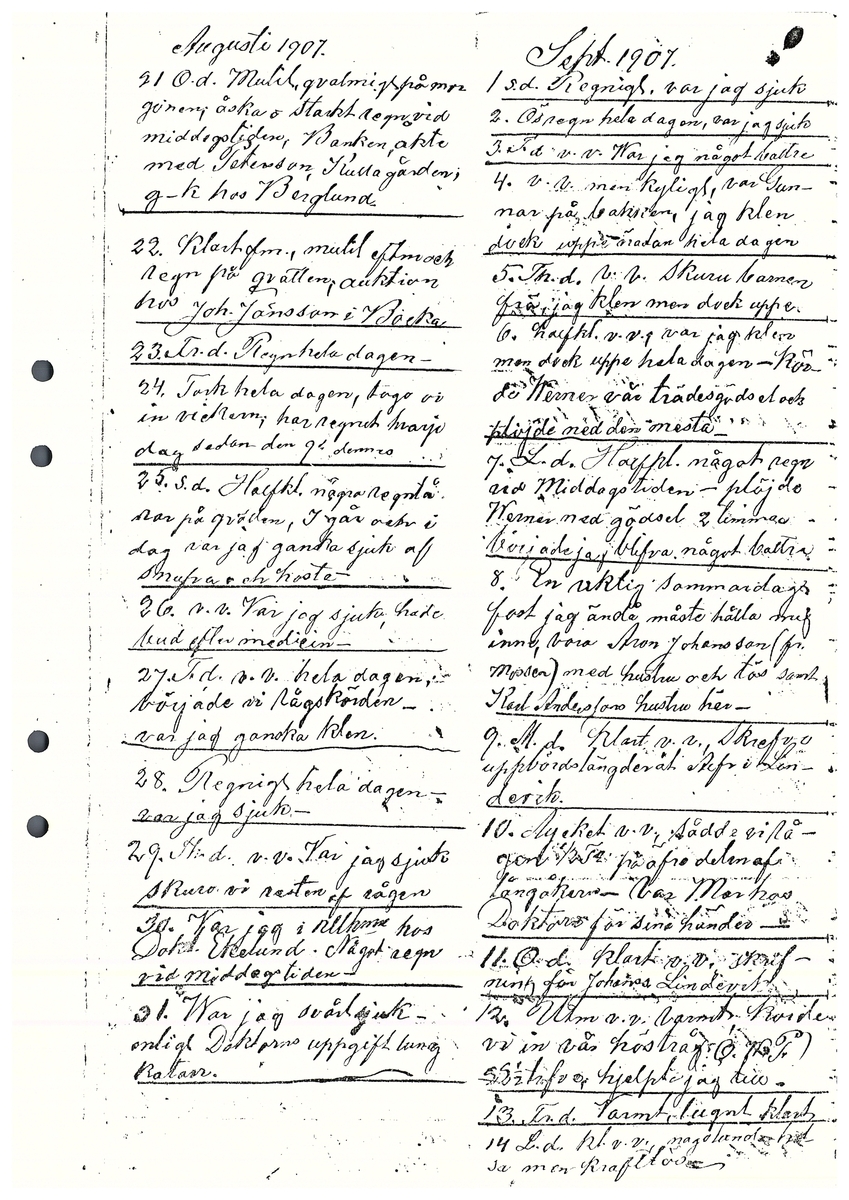 Augusti 1907.
21 O.d. Mulit, qvalmigt på mor
gonen; åska o starkt regn vid
middagstiden, Banken, åkte
med Peterson, Kullagården;
g-k hos Berglund.
22. Klart fm., mulit eftm och
regn på qvällen; auktion
hos Joh. Jönsson i Böcka
23. Tr.d. Regn hela dagen —
24. Tork hela dagen, togo vi
in vickern; har regnat hvarje
dag sedan den 9de dennes
25. S.d. Halfkl. några regnskurar
på qvällen, I går och i
dag var jag ganska sjuk af
snufva och hosta —
26. v.v. Var jag sjuk, hade
bud efter medicin —
27. T.d. v.v. hela dagen,
började vi rågskörden —
var jag ganska klen.
28. Regnigt hela dagen —
var jag sjuk —
29. Th.d. v.v. Var jag sjuk
skuro vi resten af rågen
30. Var jag i hos
Dok. Ekelund. Något regn
vid middagstiden —
31. War jag svårt sjuk —
enligt Doktorns uppgift lung
katarr.
Sept. 1907.
1 s.d. Regnigt, var jag sjuk
2. Ösregn hela dagen, var jag sjuk
3. T.d v.v. War jag något bättre
4. v.v. men kyligt, var Gun—
nar på banken, jag klen
dock uppe nädan hela dagen
5. Th.d. v.v. Skuru barnen
frö, jag klen men dock uppe.
6. Halfkl. v.v., var jag klen
men dock uppe hela dagen — Kör—
de Werner vår trädesgödsel och
plöjde ned den mesta —
7. L.d. Halfkl. något regn
vid Middagstiden — plöjde
Werner ned gödsel 2 timmar
började jag blifva något bättre
8. En riktig sommardag
fast jag ändå måste hålla mig
inne, vora Aron Johansson (fr.
Mossen) med hustru och tös samt
Karl Anderssons hustru här —
9. M.d. Klart v.v., Skref jag
uppbördslängder åt i Lin—
derik.
10. Mycket v.v., sådde vi rå—
gen på delen af
långåkern — Var Markos
Doktorn för sina händer —
11. O.d. Klart v.v. skrif—
ning för Johannes Lindevik
12. Utm v.v. varmt, körde
vi in vår
hjelpte jag till.
13. Tr.d. Varmt, lugnt klart
14 L.d. kl. v.v., någolunda
sa men kraftlös —